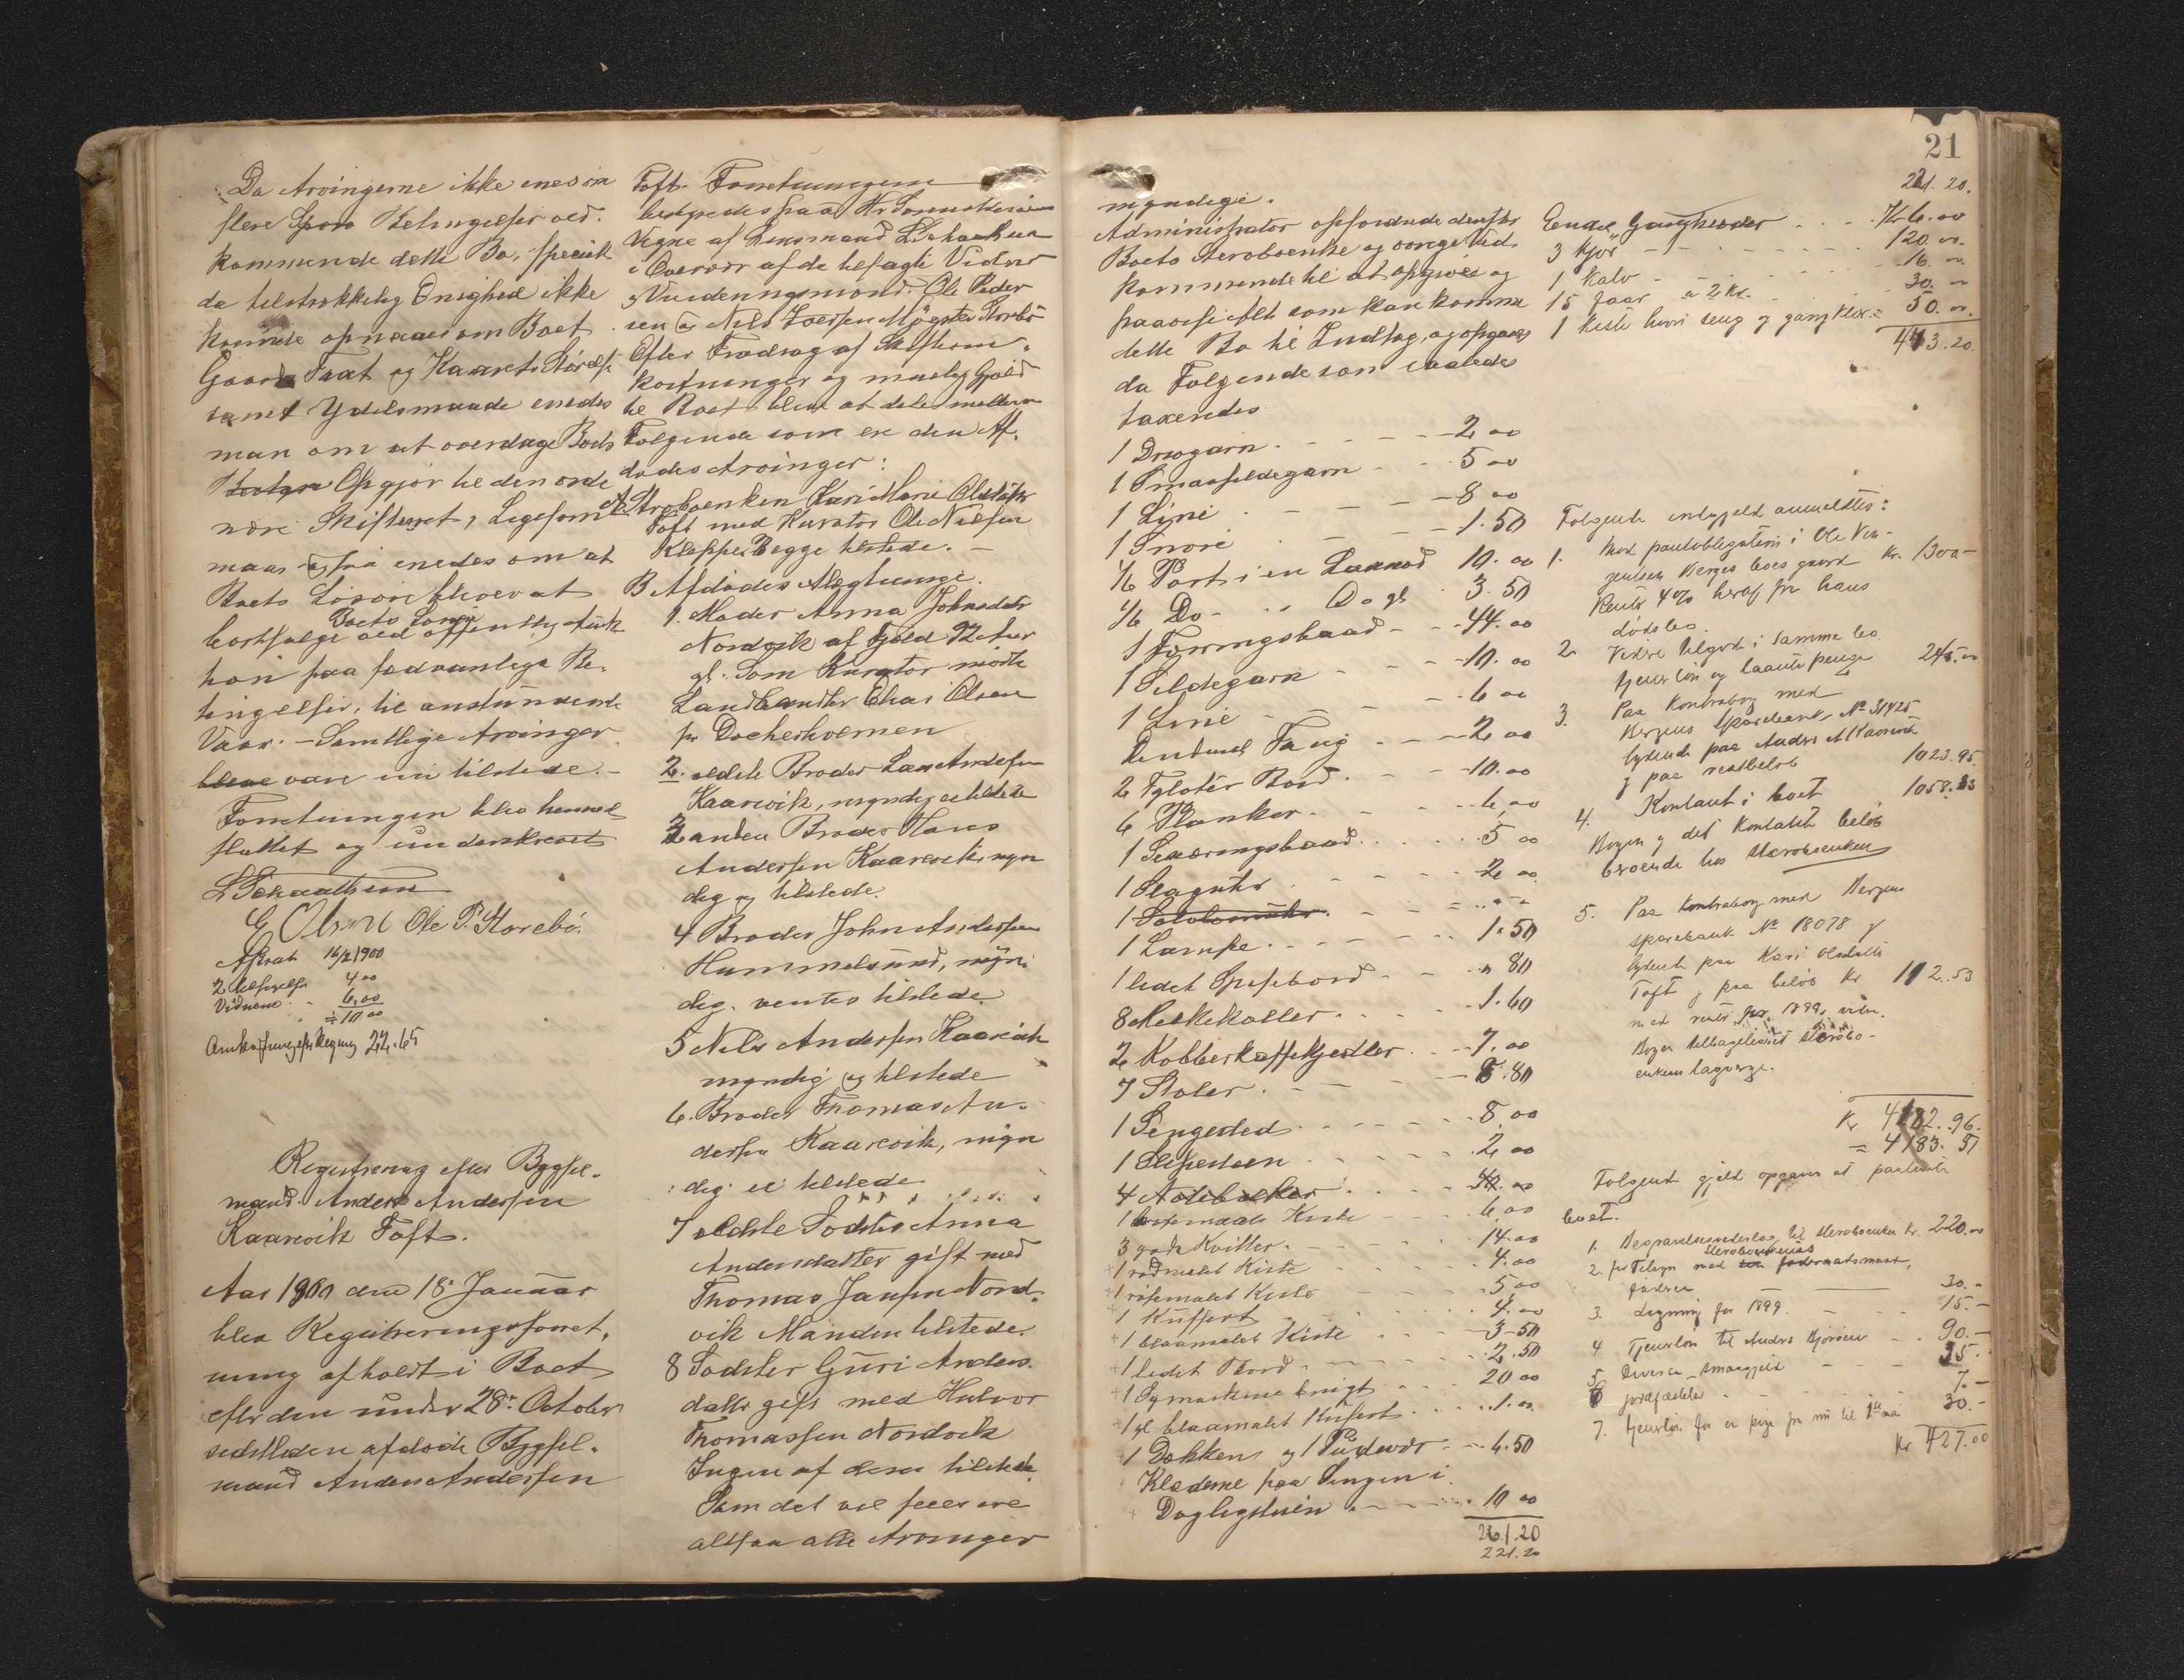 Da Arvingerne ikke enes om
flere Betingelser ved-
kommende dette Bo, specielt
da tilstrækkelig Enighed ikke
kunde opnaaes om Boet
Gaards Taxt og Kaarets Størelse
samt Ydelsmaade enedes
man om at overdrage Boets
Opgjør til den ordi-
nære Skifteret, Ligesom
man og saa enedes om at
Boets Løsøre blever at
Boets Løsøre
bortsælge ved offentlig Auk-
tion paa sedvanlige Be-
tingelser, til anstundende
Vaar. - Samtlige Arvinger
bleve vare nu tilstede. -
Forretningen blev hermed
sluttet og underskrevet
L Schaathun
G Olsen Ole P. Storebö.
Afskrab 16/2 1900
2 tilsigelse 4.00
Vidnerne 6.00
= 10 00
Omkostning efter Regning 22.65
Registrering efter Bygsel-
mand Anders Andersen
Kaarevik Toft.
Aar 1900 den 18de Januar
blev Registreringsforret-
ning afholdt i Boet
efter den under 28de October
sidstleden afdøde Bygsel-
mand Anders Andersen
Toft. Forretningen
bestyredes paa Hr Sorenskriverens
Vegne af Lensmand L Schaathun
i Overvær af de tilsagte Vidner
og Vurderingsmænd Ole Peder
sen og Nils Iversen Møgster Storbø
Efter Fradrag af Skifteom-
kostninger og mulig Gjæld
til Boet bliver at dele mellem
Følgende som er den Af-
dødes Arvinger:
A Sterboenken Kari Marie Olsdatter
Toft med Kurator Ole Nielsen
Kleppe. Begge tilstede. -
B Afdødes Slegtninge.
1. Moder Anna Johnsdatter
Nordvik af Gjeld 92 Aar
gl. Som Kurator mødte
Landhandler Elias Olsen
fr Bacherholmen
2. ældste Broder Lars Andersen
Kaarevik, myndig er tilstede
3 anden Broder Hans
Andersen Kaarevik, myn
dig og tilstede.
4 Broder John Andersen
Hummelsund, myn-
dig. ventes tilstede.
5 Nils Andersen Kaarevik
myndig og tilstede
6. Broder Thomas An-
dersen Kaarevik, myn
dig ei tilstede
7 ældste Søster Anna
Andersdatter gift med
Thomas Jansen Nord-
vik Manden tilstede.
8 Søster Guri Anders-
datter gift med Halvor
Thomassen Nordvik
Ingen af disse tilstede
Som det vil sees ere
altsaa alle Arvinger
21
myndige.
Administrator opfordrede derefter
Boets Sterboenke og øvrige Ved-
kommende til at opgive og
paavise alt som kan komme
dette Bo til Indtæg, og opgaves
da Følgende som saaledes
taxertes
1 Drivgarn - - - 2 00
1 Smaasildegarn - - 5 00
1 Line - - - 8 00
1 Snøre - - - 1.50
1/6 Part i en Laxenod 10. 00
1/6 Do - " Do gl 3.50
1 Føringsbaad - - 44. 00
1 Sildegarn - - - 10. 00
1 Line - - - 6 00
Taug - - 2 00
2 Bord - - 10.00
6 Planker - - 6,00
1 Sexæringsbaad - - 5 00
1 Slaguhr - - - 2 00
1 - - -
1 Lampe - - - 1.50
1 lidet Spisebord - - " 80
8 Melkekoller - - 1.60
2 Kobberkaffekjedler - - 7.00
7 Stoler - - - 5.80
1 Sengested - - - 8.00
1 Slibesteen - - - 2 00
4
1 Kiste - - 6,00
3 gode Kvitler - - 14.00
1 rødmalet Kiste - - 4.00
1 rosemalet Kiste - - 5 00
1 Kuffert - - 4.00
1 blaamalet Kiste - - 3-50
1 lidet Bord - - 2.50
1 Symaskine brugt - - 20 00
1 gl blaamalet Kuffert - - 1.00
1 Dækken og 1 Pudevor - - 6.50
Klæderne paa Sengen i
Dagligstuen - - 10 00
261.20
221.20
221.20.
Gangklæder - - Kr 6.00
3 Kjør - - - 120.00
1 Kalv - - - 16.00
15 Faar a 2 Kr. - - 30.00
1 Kiste hvori seng og gangklær - 50.00
443.20.
Følgende indgjeld anmeldtes:
1. Med pantobligation i Ole Vin-
gentsen Berges boes gaard Kr. 1300-
Renter 4% heraf fra hans
dødsbo.
2. Videre tilgode i samme bo
tjenerløn og laante penge 245.00
3. Paa Kontrabog med
Bergens Sparebank No 31425
lydende paa Anders A Kaarevik
og paa restbeløb 1023.95.
4. Kontant i boet 1058.83
Bogen og det Kontante beløb
beroende hos Sterboenken
5. Paa Kontrabog med Bergens
Sparebank No 18078
lydende paa Kari Olsdatter
Toft og paa beløb Kr 112.53
med renter for 1899,
Bogen tilbageleveret Sterbo-
enkens lagverge.
Kr 4182.96.
= 4183.51
Følgende gjeld opgaves at paahvile
boet.
1. Begravelsesudlæg til Sterboenken Kr. 220.00
Sterboenkens
2. for Tilsyn med føderaadsmand,
30.-
3. Ligning for 1899. - - 15.-
4 Tjenerløn til Anders - - 90.-
5 Diverse smaagjeld - - 35.-
6 jordfæstelse - - 7.-
7. tjenerløn for en pige fra nu til 1ste mai 30.-
Kr 427.00